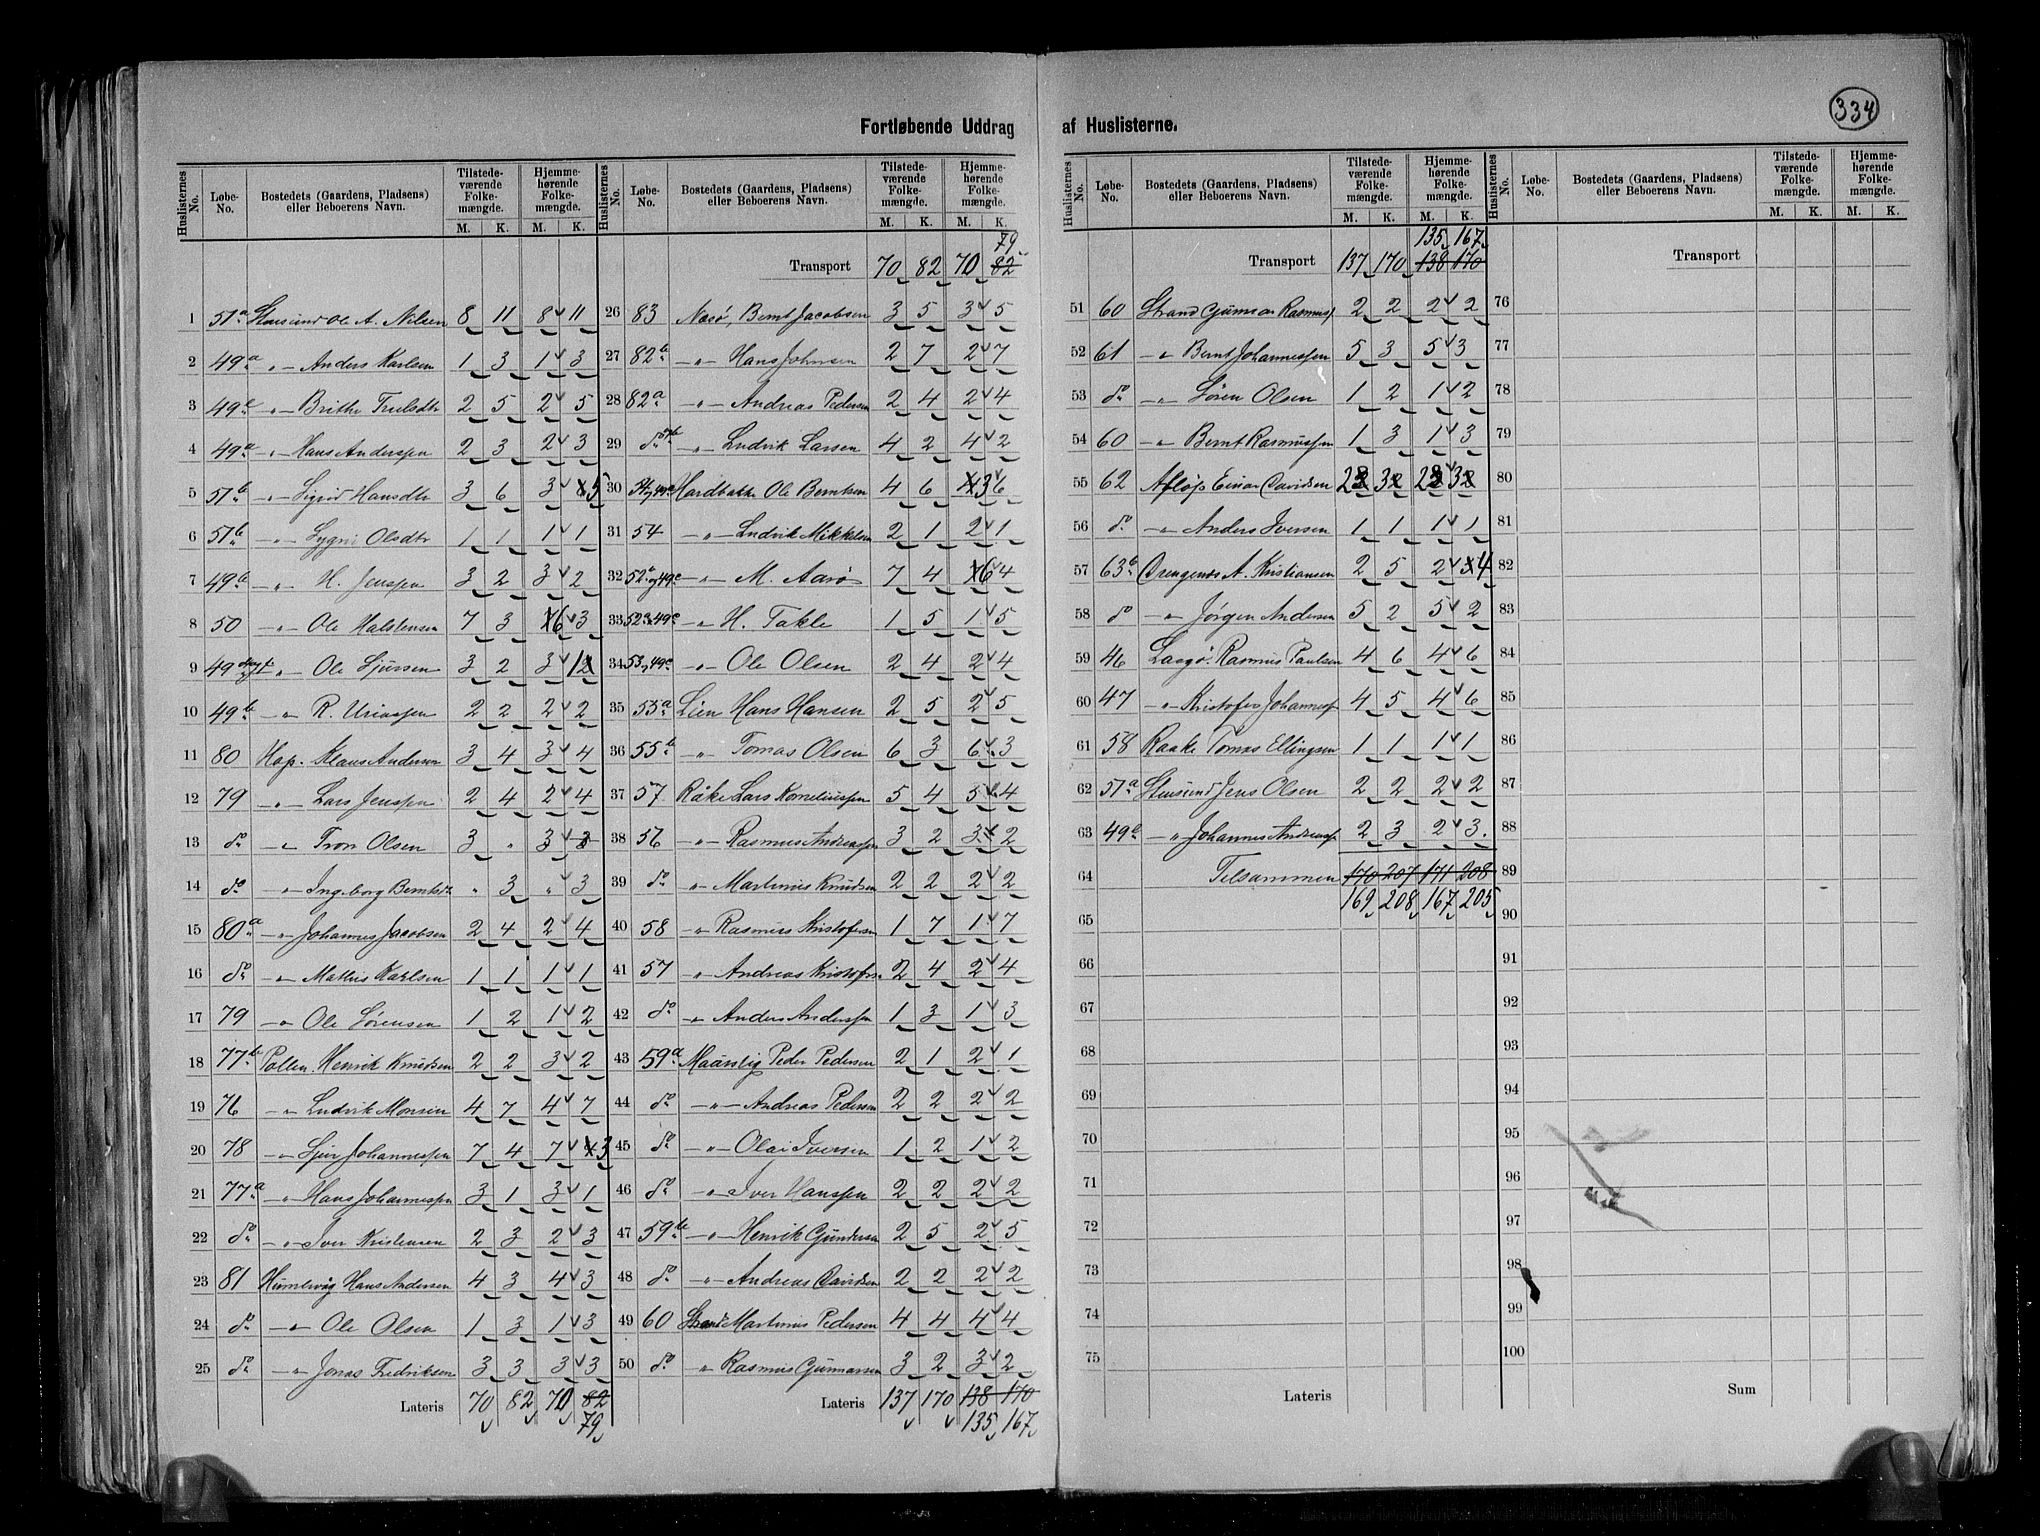 334
Fortløbende Uddrag af Huslisterne.
Huslisternes No. Løbe-No. Bostedets (Gaardens, Pladsens) eller Beboerens Navn. Tilstedeværende Folkemængde. M. K. Hjemmehørende Folkemængde. M. K.
1 51a Ole A. Nilsen 8 11 8 11
2 49a -"- Anders Karlsen 1 3 1 3
3 49c -"- Brithe Trulsdtr 2 5 2 5
4 49a -"- Hans Anderssen 2 3 2 3
5 51b -"- Sigrid Hansdtr 3 6 3 5
6 51b -"- Olsdtr 1 1 1 1
7 49b -"- H. Jenssen 3 2 3 2
8 50 -"- Ole Halstensen 7 3 6 3
9 49 -"- Ole Sjursen 3 2 3 1
10 49b -"- R. Uriassen 2 2 2 2
11 80 Hop. Klaus Andersen 3 4 3 4
12 79 -"- Lars Jenssen 2 4 2 4
13 do -"- Tron Olsen 3 " 3
14 do -"- Ingeborg Berntsdtr " 3 " 3
15 80a -"- Johannes Jacobsen 2 4 2 4
16 do -"- Mathias Karlsen 1 1 1 1
17 79 -"- Ole Sørensen 1 2 1 2
18 77b Pollen Henrik Knudsen 2 2 3 2
19 76 -"- Ludvik Monsen 4 7 4 7
20 78 -"- Sjur Johannessen 7 4 7 3
21 77a -"- Hans Johannessen 3 1 3 1
22 do -"- Iver Kristensen 2 3 2 3
23 81 Humlevåg Hans Andersen 4 3 4 3
24 do -"- Ole Olsen 1 3 1 3
25 do -"- Jonas Fredriksen 3 3 3 3
Lateris 70 82 70 82
79
Huslisternes No. Løbe-No. Bostedets (Gaardens, Pladsens) eller Beboerens Navn. Tilstedeværende Folkemængde. M. K. Hjemmehørende Folkemængde. M. K.
79
Transport 70 82 70 82
26 83 Næsø, Bernt Jacobsen 3 5 3 5
27 82b -"- Hans Johnsen 2 7 2 7
28 82a -"- Andreas Pedersen 2 4 2 4
29 do -"- Ludvik Larsen 4 2 4 2
30 Hardbakke Ole Berntsen 4 6 3 6
31 54 -"- Ludvik Mikkelsen 2 1 2 1
32 52b og 49c -"- M. Aarø 7 4 6 4
33 52a 49c -"- H. Takle 1 5 1 5
34 53 og 49c -"- Ole Olsen 2 4 2 4
35 55a Lien Hans Hansen 2 5 2 5
36 55b " Tomas Olsen 6 3 6 3
37 57 Råke Lars Korneliussen 5 4 5 4
38 56 -"- Rasmus Andreassen 3 2 3 2
39 do " Martinus Knudsen 2 2 2 2
40 58 " Rasmus Kristofersen 1 7 1 7
41 57 " Andreas Kristofersen 2 4 2 4
42 do -"- Anders Anderssen 1 3 1 3
43 59a Peder Pedersen 2 1 2 1
44 do -"- Andreas Pedersen 2 2 2 2
45 do -"- Olai Iversen 1 2 1 2
46 do -"- Iver Hanssen 2 2 2 2
47 59b -"- Henrik Gundersen 2 5 2 5
48 do -"- Andreas Davidsen 2 2 2 2
49 60 Strand Martinus Pedersen 4 4 4 4
50 do " Rasmus Gunnarsen 3 2 3 2
Lateris 137 170 138 170
135 167
Huslisternes No. Løbe-No. Bostedets (Gaardens, Pladsens) eller Beboerens Navn. Tilstedeværende Folkemængde. M. K. Hjemmehørende Folkemængde. M. K.
135 167
Transport 137 170 138 170
51 60 Strand Gunnar Rasmuss 2 2 2 2
52 61 -"- Bernt Johannessen 5 3 5 3
53 do -"- Søren Olsen 1 2 1 2
54 60 -"- Bernt Rasmussen 1 3 1 3
55 62 Afløjs Einar Davidsen 2 3 2 3
56 do -"- Anders Iversen 1 1 1 1
57 63b Drengenes A. Kristiansen 2 5 2 4
58 do -"- Jörgen Andersen 5 2 5 2
59 46 Rasmus Paulsen 4 6 4 6
60 47 -"- Kristofer Johanness 4 5 4 6
61 58 Raake Tomas Ellingsen 1 1 1 1
62 51a Jens Olsen 2 2 2 2
63 49b -"- Johannes Andreass 2 3 2 3
64 Tilsammen 170 207 171 208
65 169 208 167 205
66
67
68
69
70
71
72
73
74
75
Lateris
Huslisternes No. Løbe-No. Bostedets (Gaardens, Pladsens) eller Beboerens Navn. Tilstedeværende Folkemængde. M. K. Hjemmehørende Folkemængde. M. K.
Transport
76
77
78
79
80
81
82
83
84
85
86
87
88
89
90
91
92
93
94
95
96
97
98
99
100
Sum